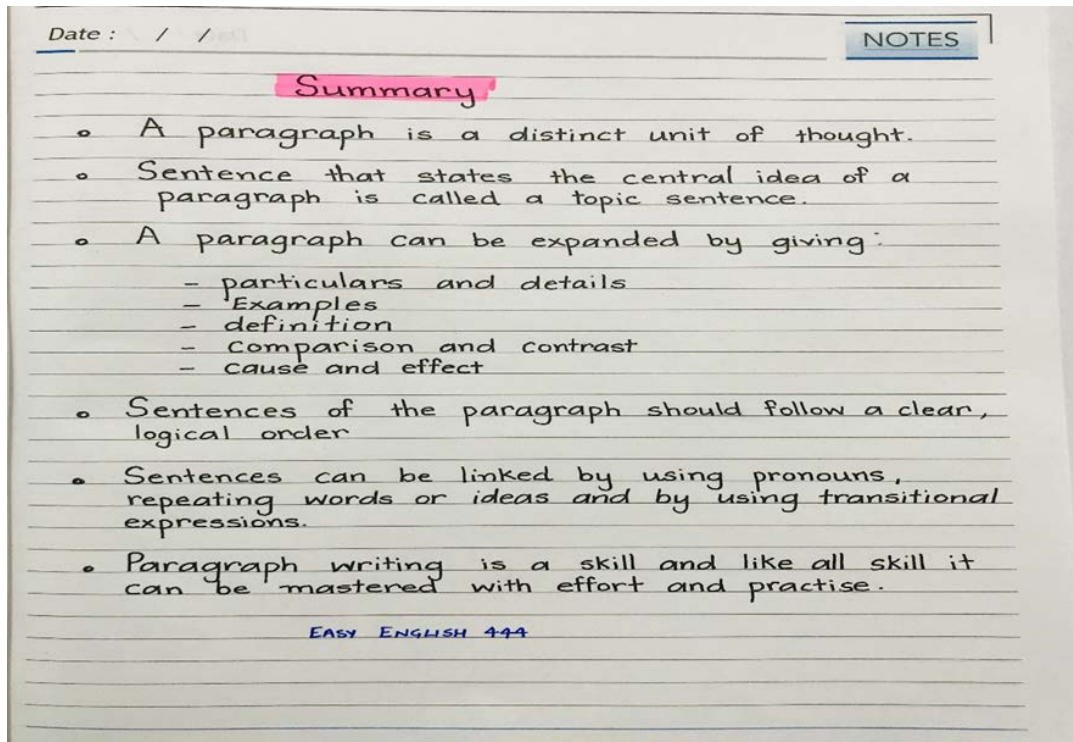 Date : / /
NOTES
Summary
• A paragraph is a distinct unit of thought.
• Sentence that states the central idea of a
paragraph is called a topic sentence.
• A paragraph can be expanded by giving:
- particulars and details
- Examples
- definition
- Comparison and contrast
- cause and effect
• Sentences of the paragraph should follow a clear,
logical order
• Sentences can be linked by using pronouns,
repeating words or ideas and by using transitional
expressions.
• Paragraph writing is a skill and like all skill it
can be mastered with effort and practise.
EASY ENGLISH 444